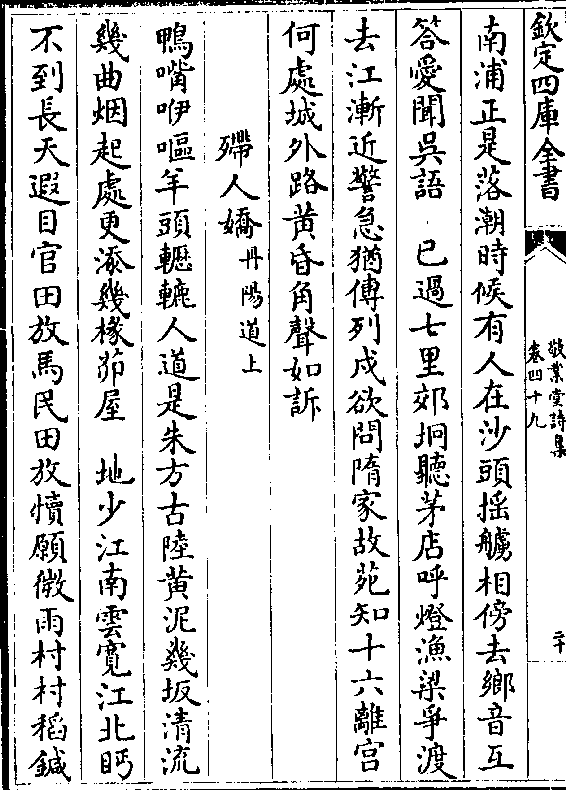 欽定四庫全書
敬業堂詩集
卷四十九
二十
南浦正是落潮時候有人在沙頭揺艣相傍去鄉音互
答愛聞吳語　已過七里郊坰聽茅店呼燈漁梁爭渡
去江漸近警急猶傳列戍欲問隋家故苑知十六離宫
何處城外路黄昏角聲如訴
殢人嬌丹陽道上
鴨嘴咿嘔羊頭轣轆人道是朱方古陸黄泥幾坂清流
幾曲烟起處更添幾椽茆屋　地少江南雲寛江北眄
不到長天遐目官田放馬民田放犢願微雨村村稻鍼